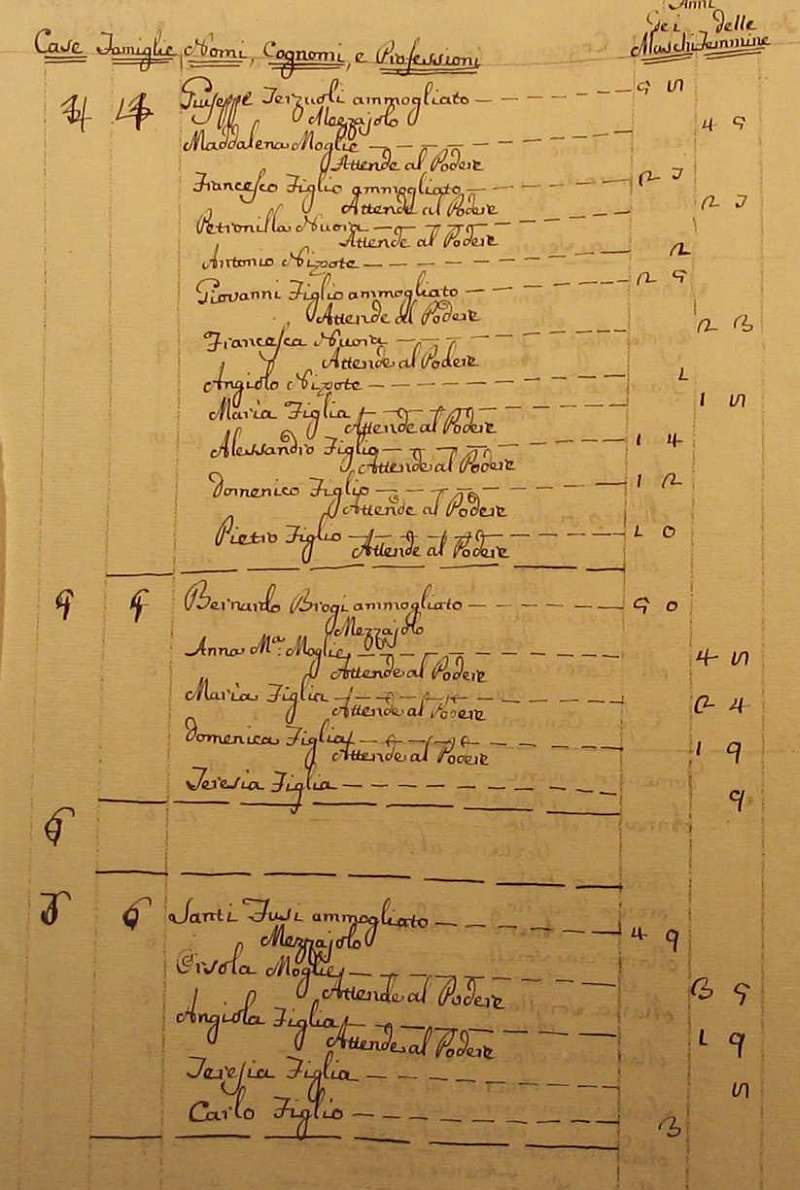 Anni
Case Famiglie Nomi, Cognomi, e Professioni dei Maschi delle Femmine
4 4 Giuseppe Terzuoli ammogliato 58
Mezzajolo
Maddalena Moglie 45
Attende al Podere
Francesco Figlio ammogliato 27
Attende al Podere
Petronilla Nuora 27
Attende al Podere
Antonio Nipote 2
Giovanni Figlio ammogliato 25
Attende al Podere
Francesca Nuora 23
Attende al Podere
Angiolo Nipote 1
Maria Figlia 18
Attende al Podere
Alessandro Figlio 14
Attende al Podere
Domenico Figlio 12
Attende al Podere
Pietro Figlio 10
Attende al Podere
5 5 Bernardo Brogi ammogliato 50
Mezzajolo
Anna Ma. Moglie 48
Attende al Podere
Maria Figlia 24
Attende al Podere
Domenica Figlia 19
Attende al Podere
Teresia Figlia 9
6
7 6 Santi Fusi ammogliato 49
Mezzajolo
Orsola Moglie 35
Attende al Podere
Angiola Figlia 19
Attende al Podere
Teresia Figlia 8
Carlo Figlio 3